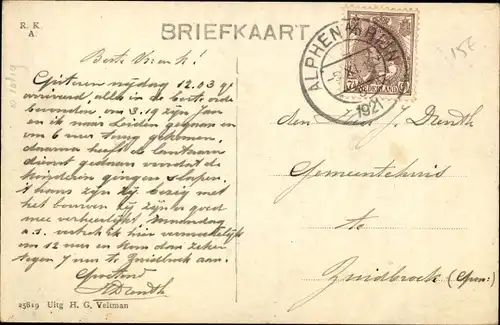 R. K.
A.
BRIEFKAART
ALPHEN A/D RIJN
1921
7½
NEDERLAND
15-
Beste Vriend!
Gisteren 12.03
alles in de beste orde
bevonden, om 3.19 zijn Jan
en ik naar Leiden gegaan en
om 6 uur terug gekomen,
daarna heeft de lantaarn
dienst gedaan voordat de
kinderen gingen slapen.
thans zijn zij bezig met
het bouwen zijn goed
mee Maandag
a.s. vertrek ik hier vermoedelijk
om 12 uur en kom dan zeker
tegen 7 uur te Zuidbroek aan.
Groetend
Drenth
den Heer J. Drenth
Gemeentehuis
te
Zuidbroek (Gron:)
25819 Uitg H. G. Veltman